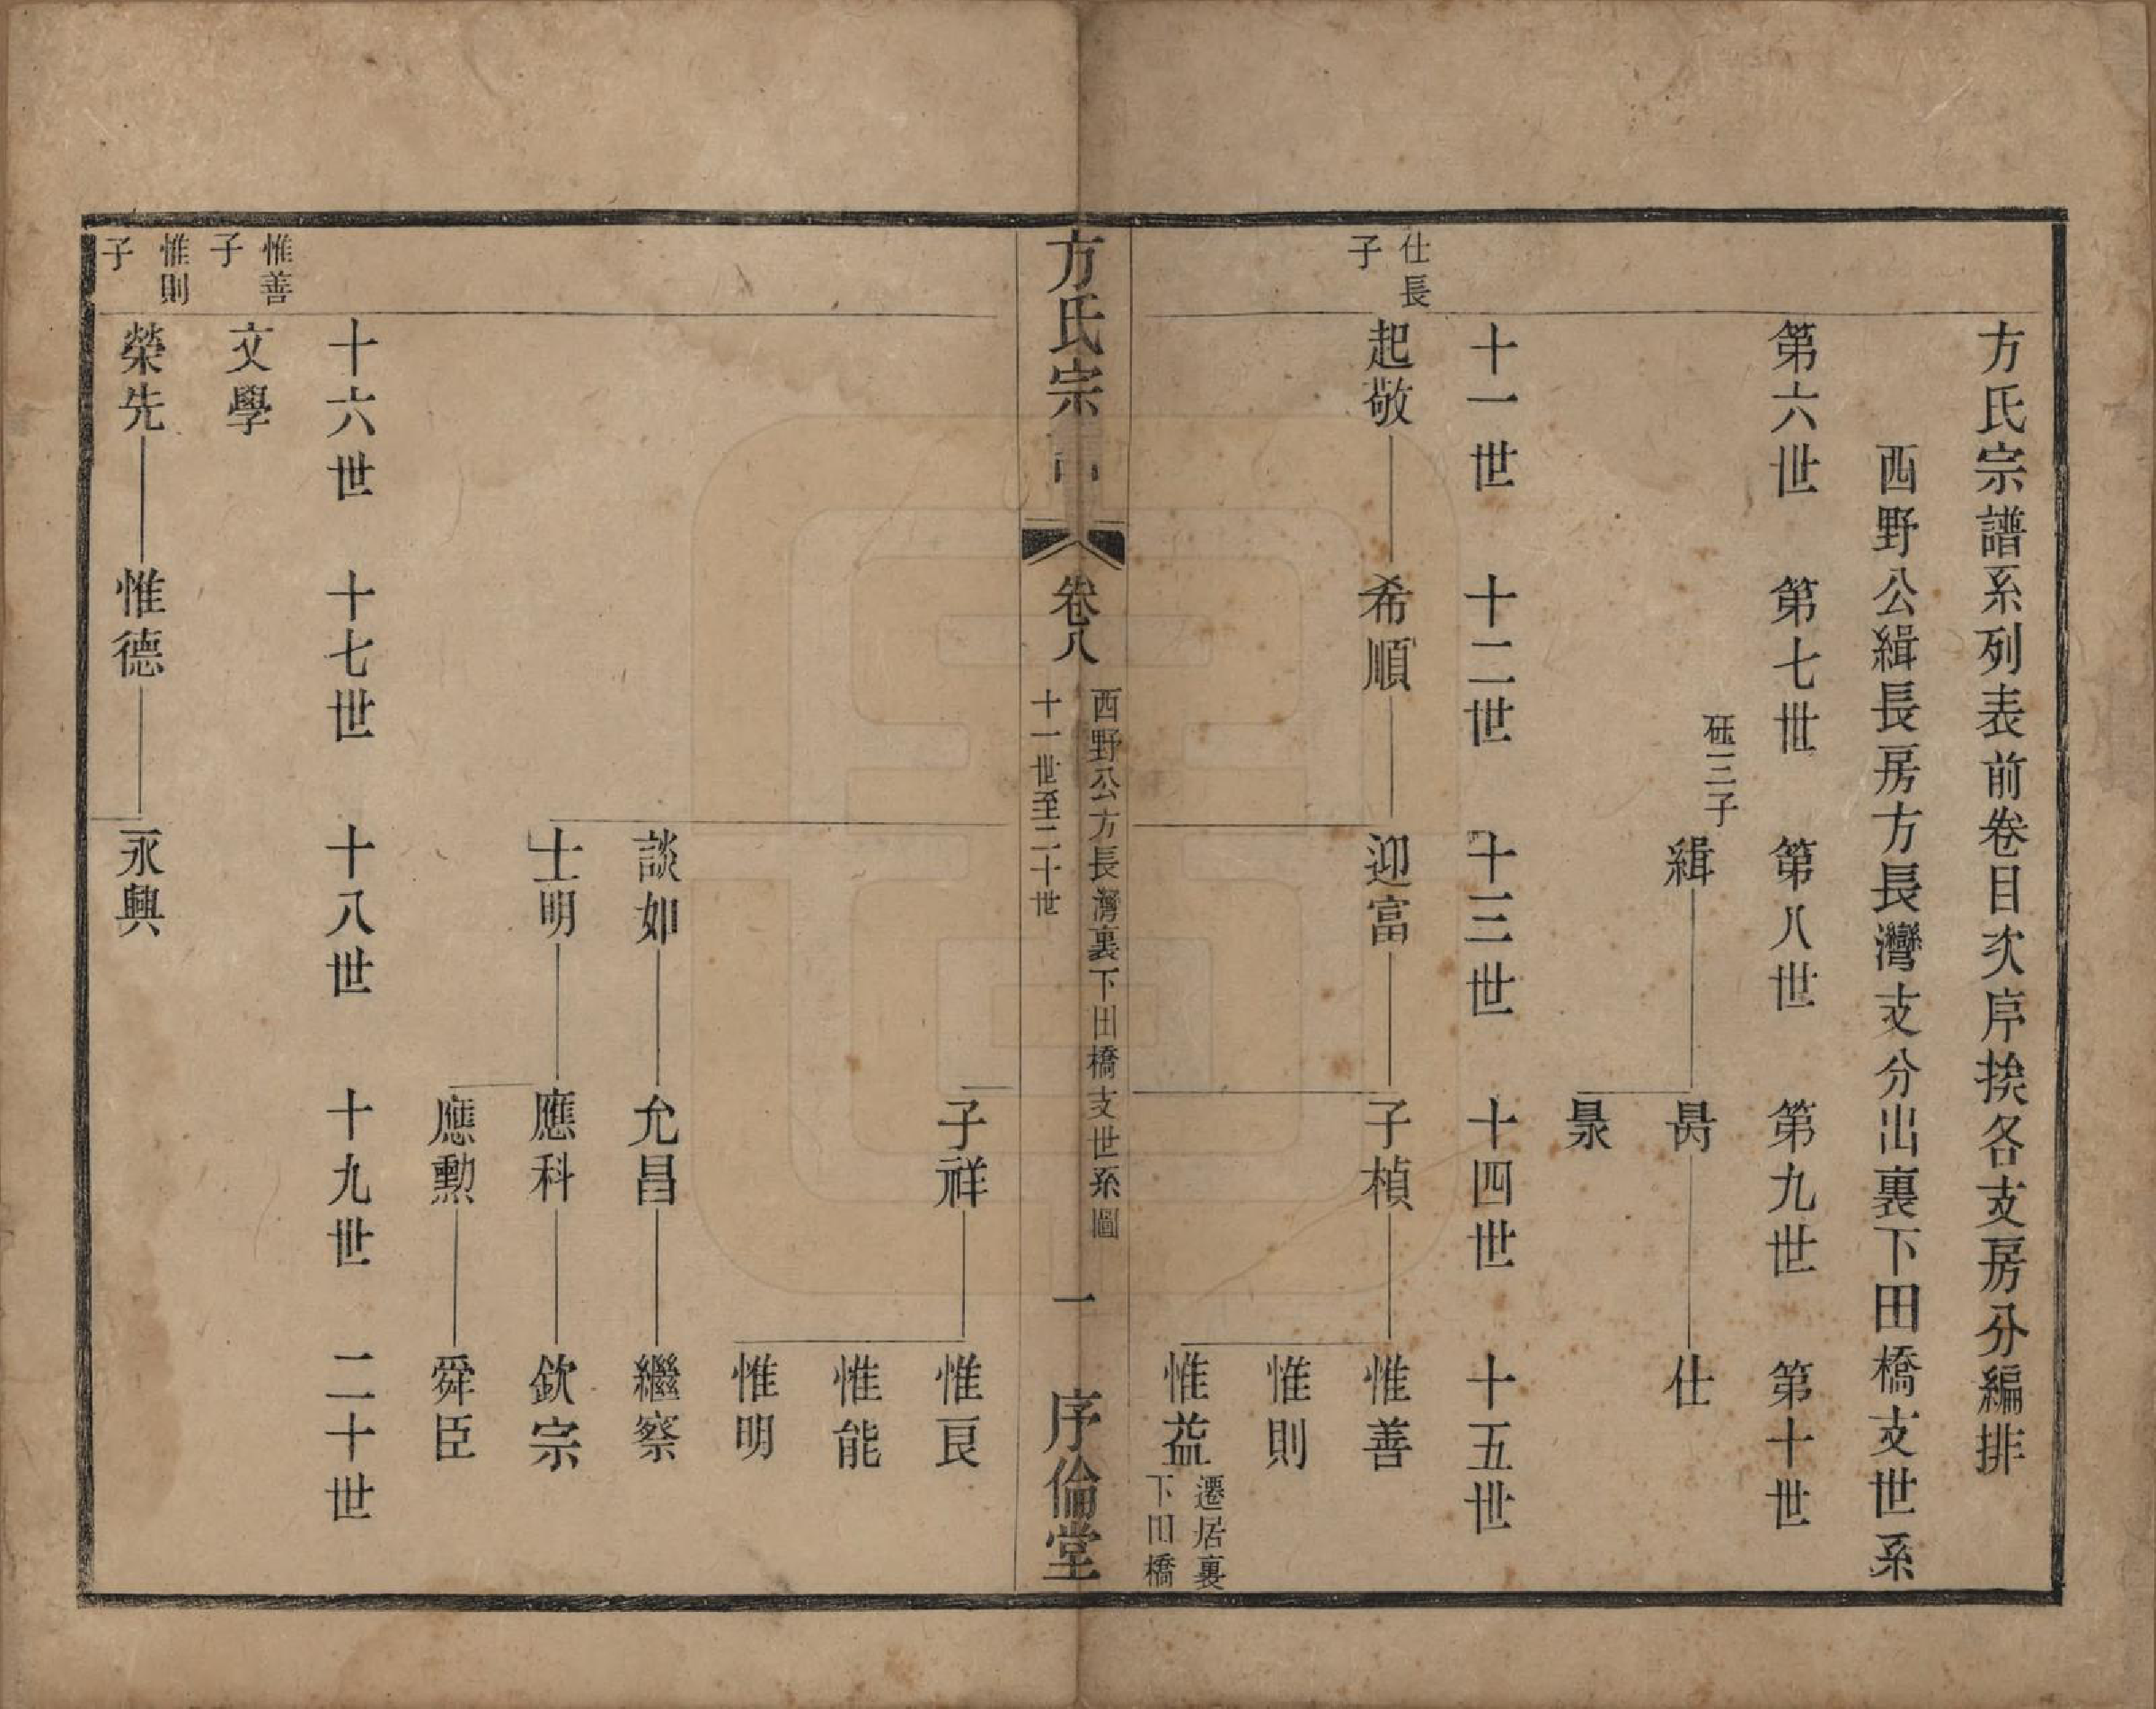 方氏宗譜系列表前卷目次序挨各支房分編排
西野公緝長房方長灣支分出裏下田橋支世系
第六世 第七世 第八世 第九世 第十世
砡三子
緝 昺 仕
晜
十一世 十二世 十三世 十四世 十五世
仕長子
起敬 希順 迎富 子楨 惟善
惟則
惟益 遷居裏下田橋
方氏宗譜 卷八 西野公方長灣裏下田橋支世系圖 十一世至二十世 一 序倫堂
子祥 惟良
惟能
惟明
談如 允昌 繼察
士明 應科 欽宗
應勲 舜臣
十六世 十七世 十八世 十九世 二十世
惟善子
文學
惟則子
榮先 惟德 永興